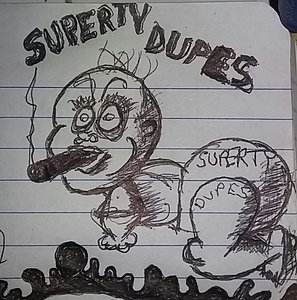 SUPERTY
DUPES
SUPERTY
DUPES